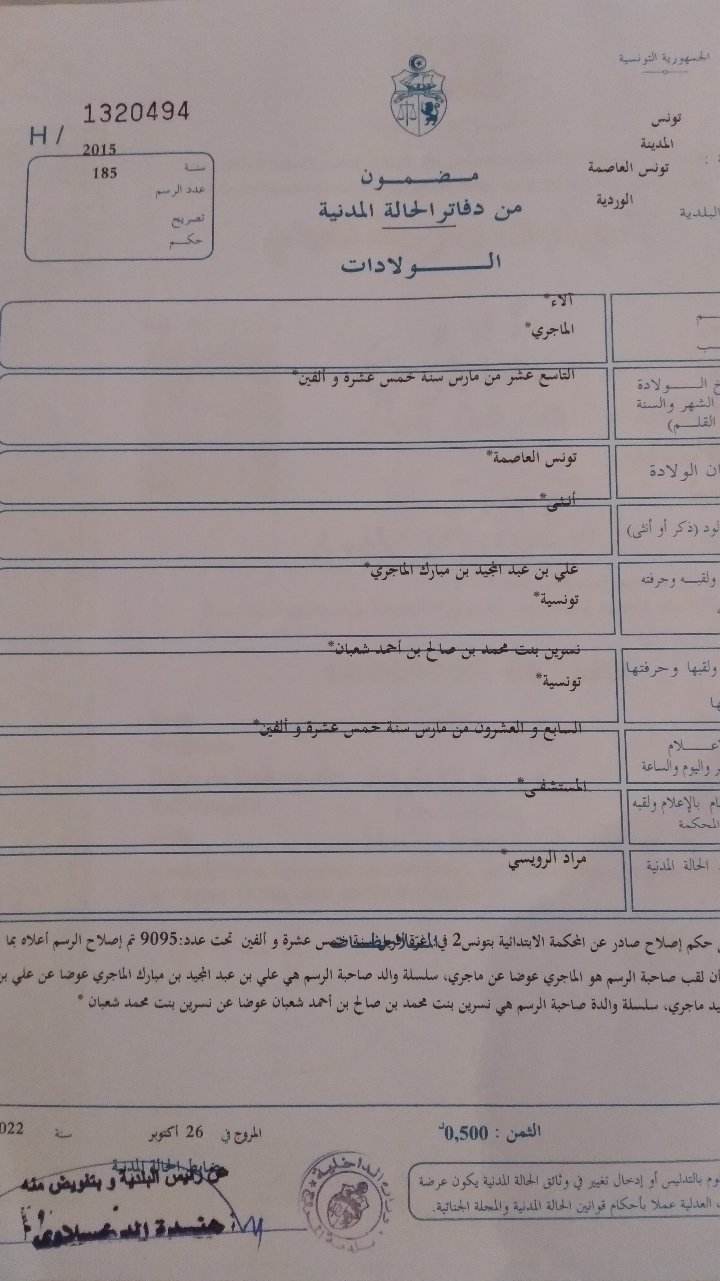 الجمهورية التونسية
تونس
المدينة
تونس العاصمة
الوردية
البلدية
H / 1320494
2015
سنة
185
عدد الرسم
تصريح
حكم
مضمون
من دفاتر الحالة المدنية
الولادات
آلاء*
الماجري*
التاسع عشر من مارس سنة خمس عشرة و ألفين*
الولادة
الشهر والسنة
القلم)
تونس العاصمة*
الولادة
أنثى*
(ذكر أو أنثى)
علي بن عبد المجيد بن مبارك الماجري*
ولقبه وحرفته
تونسية*
نسرين بنت محمد بن صالح بن أحمد شعبان*
ولقبها وحرفتها
تونسية*
السابع و العشرون من مارس سنة خمس عشرة و ألفين*
واليوم والساعة
المستشفى*
بالإعلام ولقبه
المحكمة
مراد الرويسي*
الحالة المدنية
حكم إصلاح صادر عن المحكمة الابتدائية بتونس2 في سنة خمس عشرة و ألفين تحت عدد:9095 تم إصلاح الرسم أعلاه بما
أن لقب صاحبة الرسم هو الماجري عوضا عن ماجري، سلسلة والد صاحبة الرسم هي علي بن عبد المجيد بن مبارك الماجري عوضا عن علي بن
ماجري، سلسلة والدة صاحبة الرسم هي نسرين بنت محمد بن صالح بن أحمد شعبان عوضا عن نسرين بنت محمد شعبان *
الثمن : 0,500
في 26 أكتوبر
سنة
022
بالتدليس أو إدخال تغيير في وثائق الحالة المدنية يكون عرضة
العدلية عملا بأحكام قوانين الحالة المدنية والمجلة الجنائية.
ضابط الحالة المدنية
عن رئيس البلدية و بتفويض منه
الداخلية